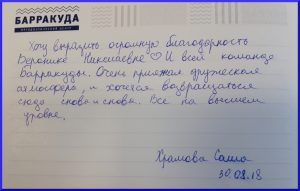 БАРРАКУДА
Хочу выразить огромную благодарность
Веронике Николаевне ♡ И всей команде
Барракуды. Очень приятная дружеская
атмосфера, и хочется возвращаться
сюда снова и снова. Все на высшем
уровне.
Храмова
30.08.18